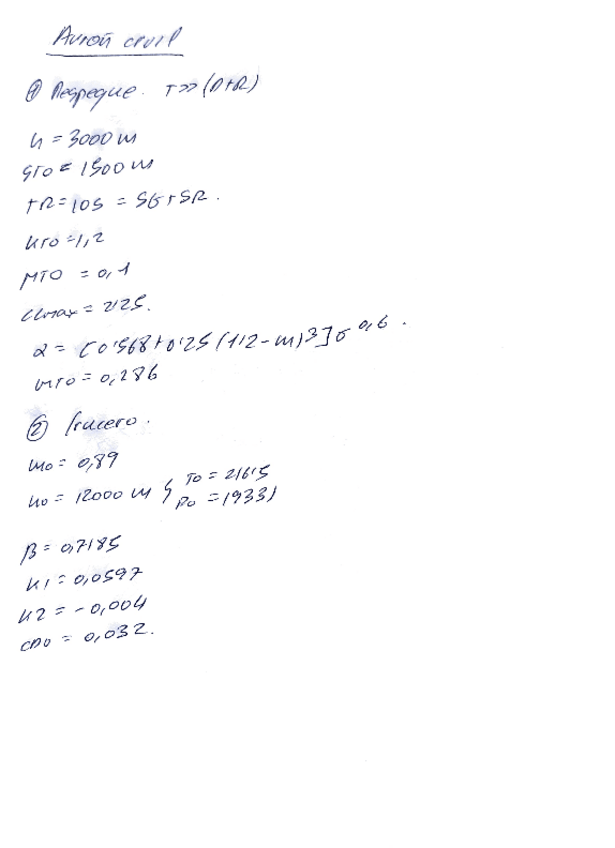 Avión civil
① Despegue. T>>(D+R)
h = 3000 m
STO = 1500 m
tR = 10S = SG+SR.
kTO = 1,2
μTO = 0,1
CLmax = 2'25.
α = [0'568+0'25(1'2-m)3]σ^0,6.
mTO = 0,286
② Crucero.
m0 = 0,89
h0 = 12000 m { T0 = 216'5
P0 = 19331
β = 0,7185
k1 = 0,0597
k2 = -0,004
CD0 = 0,032.